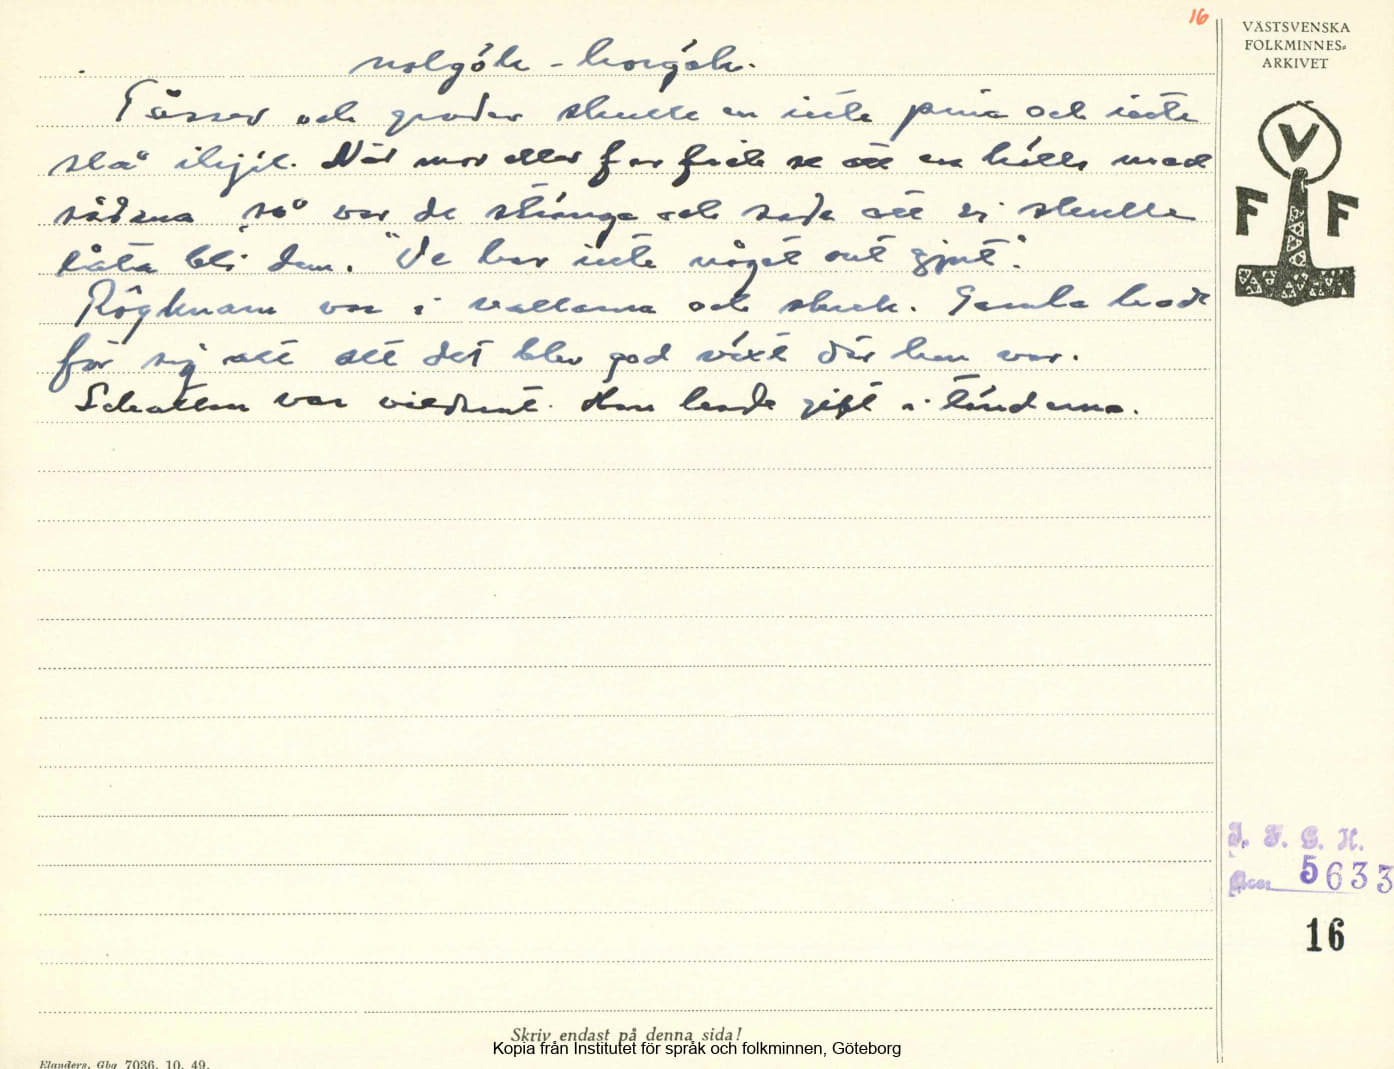 16
VÄSTSVENSKA
FOLKMINNES-
ARKIVET
V
F F
nolgök - horgök.
Tåssor och grodor skulle en inte pina och inte
slå ihjel. När mor eller far fick se att en hölls med
sådana så var de stränga och sade att vi skulle
låta bli dem. "De har inte något ont gjort".
Rågknarn var i vallarna och skrek. Gamla hade
för sig att att det blev god växt där han var.
Skatten var vildrat. Han hade gift i tänderna.
I. F. G. H.
Acc. 5633
16
Skriv endast på denna sida!
Kopia från Institutet för språk och folkminnen, Göteborg
Elanders, Gbg 7036. 10. 49.